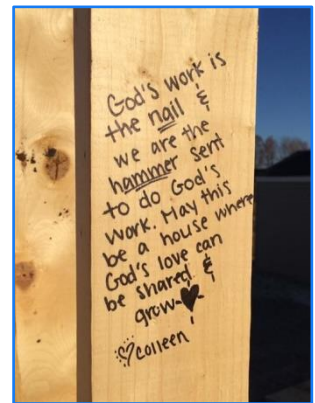 God's work is
the nail &
we are the
hammer sent
to do God's
work. May this
be a house where
God's love can
be shared &
grow
Colleen